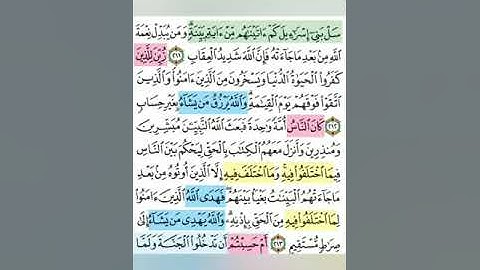 سَلْ بَنِىٓ إِسْرَٰٓءِيلَ كَمْ ءَاتَيْنَٰهُم مِّنْ ءَايَةٍۭ بَيِّنَةٍ ۗ وَمَن يُبَدِّلْ نِعْمَةَ
ٱللَّهِ مِنۢ بَعْدِ مَا جَآءَتْهُ فَإِنَّ ٱللَّهَ شَدِيدُ ٱلْعِقَابِ ٢١١ زُيِّنَ لِلَّذِينَ
كَفَرُوا۟ ٱلْحَيَوٰةُ ٱلدُّنْيَا وَيَسْخَرُونَ مِنَ ٱلَّذِينَ ءَامَنُوا۟ ۘ وَٱلَّذِينَ
ٱتَّقَوْا۟ فَوْقَهُمْ يَوْمَ ٱلْقِيَٰمَةِ ۗ وَٱللَّهُ يَرْزُقُ مَن يَشَآءُ بِغَيْرِ حِسَابٍ
٢١٢ كَانَ ٱلنَّاسُ أُمَّةً وَٰحِدَةً فَبَعَثَ ٱللَّهُ ٱلنَّبِيِّـۧنَ مُبَشِّرِينَ
وَمُنذِرِينَ وَأَنزَلَ مَعَهُمُ ٱلْكِتَٰبَ بِٱلْحَقِّ لِيَحْكُمَ بَيْنَ ٱلنَّاسِ
فِيمَا ٱخْتَلَفُوا۟ فِيهِ ۚ وَمَا ٱخْتَلَفَ فِيهِ إِلَّا ٱلَّذِينَ أُوتُوهُ مِنۢ بَعْدِ
مَا جَآءَتْهُمُ ٱلْبَيِّنَٰتُ بَغْيًۢا بَيْنَهُمْ ۖ فَهَدَى ٱللَّهُ ٱلَّذِينَ ءَامَنُوا۟
لِمَا ٱخْتَلَفُوا۟ فِيهِ مِنَ ٱلْحَقِّ بِإِذْنِهِۦ ۗ وَٱللَّهُ يَهْدِى مَن يَشَآءُ إِلَىٰ
صِرَٰطٍ مُّسْتَقِيمٍ ٢١٣ أَمْ حَسِبْتُمْ أَن تَدْخُلُوا۟ ٱلْجَنَّةَ وَلَمَّا